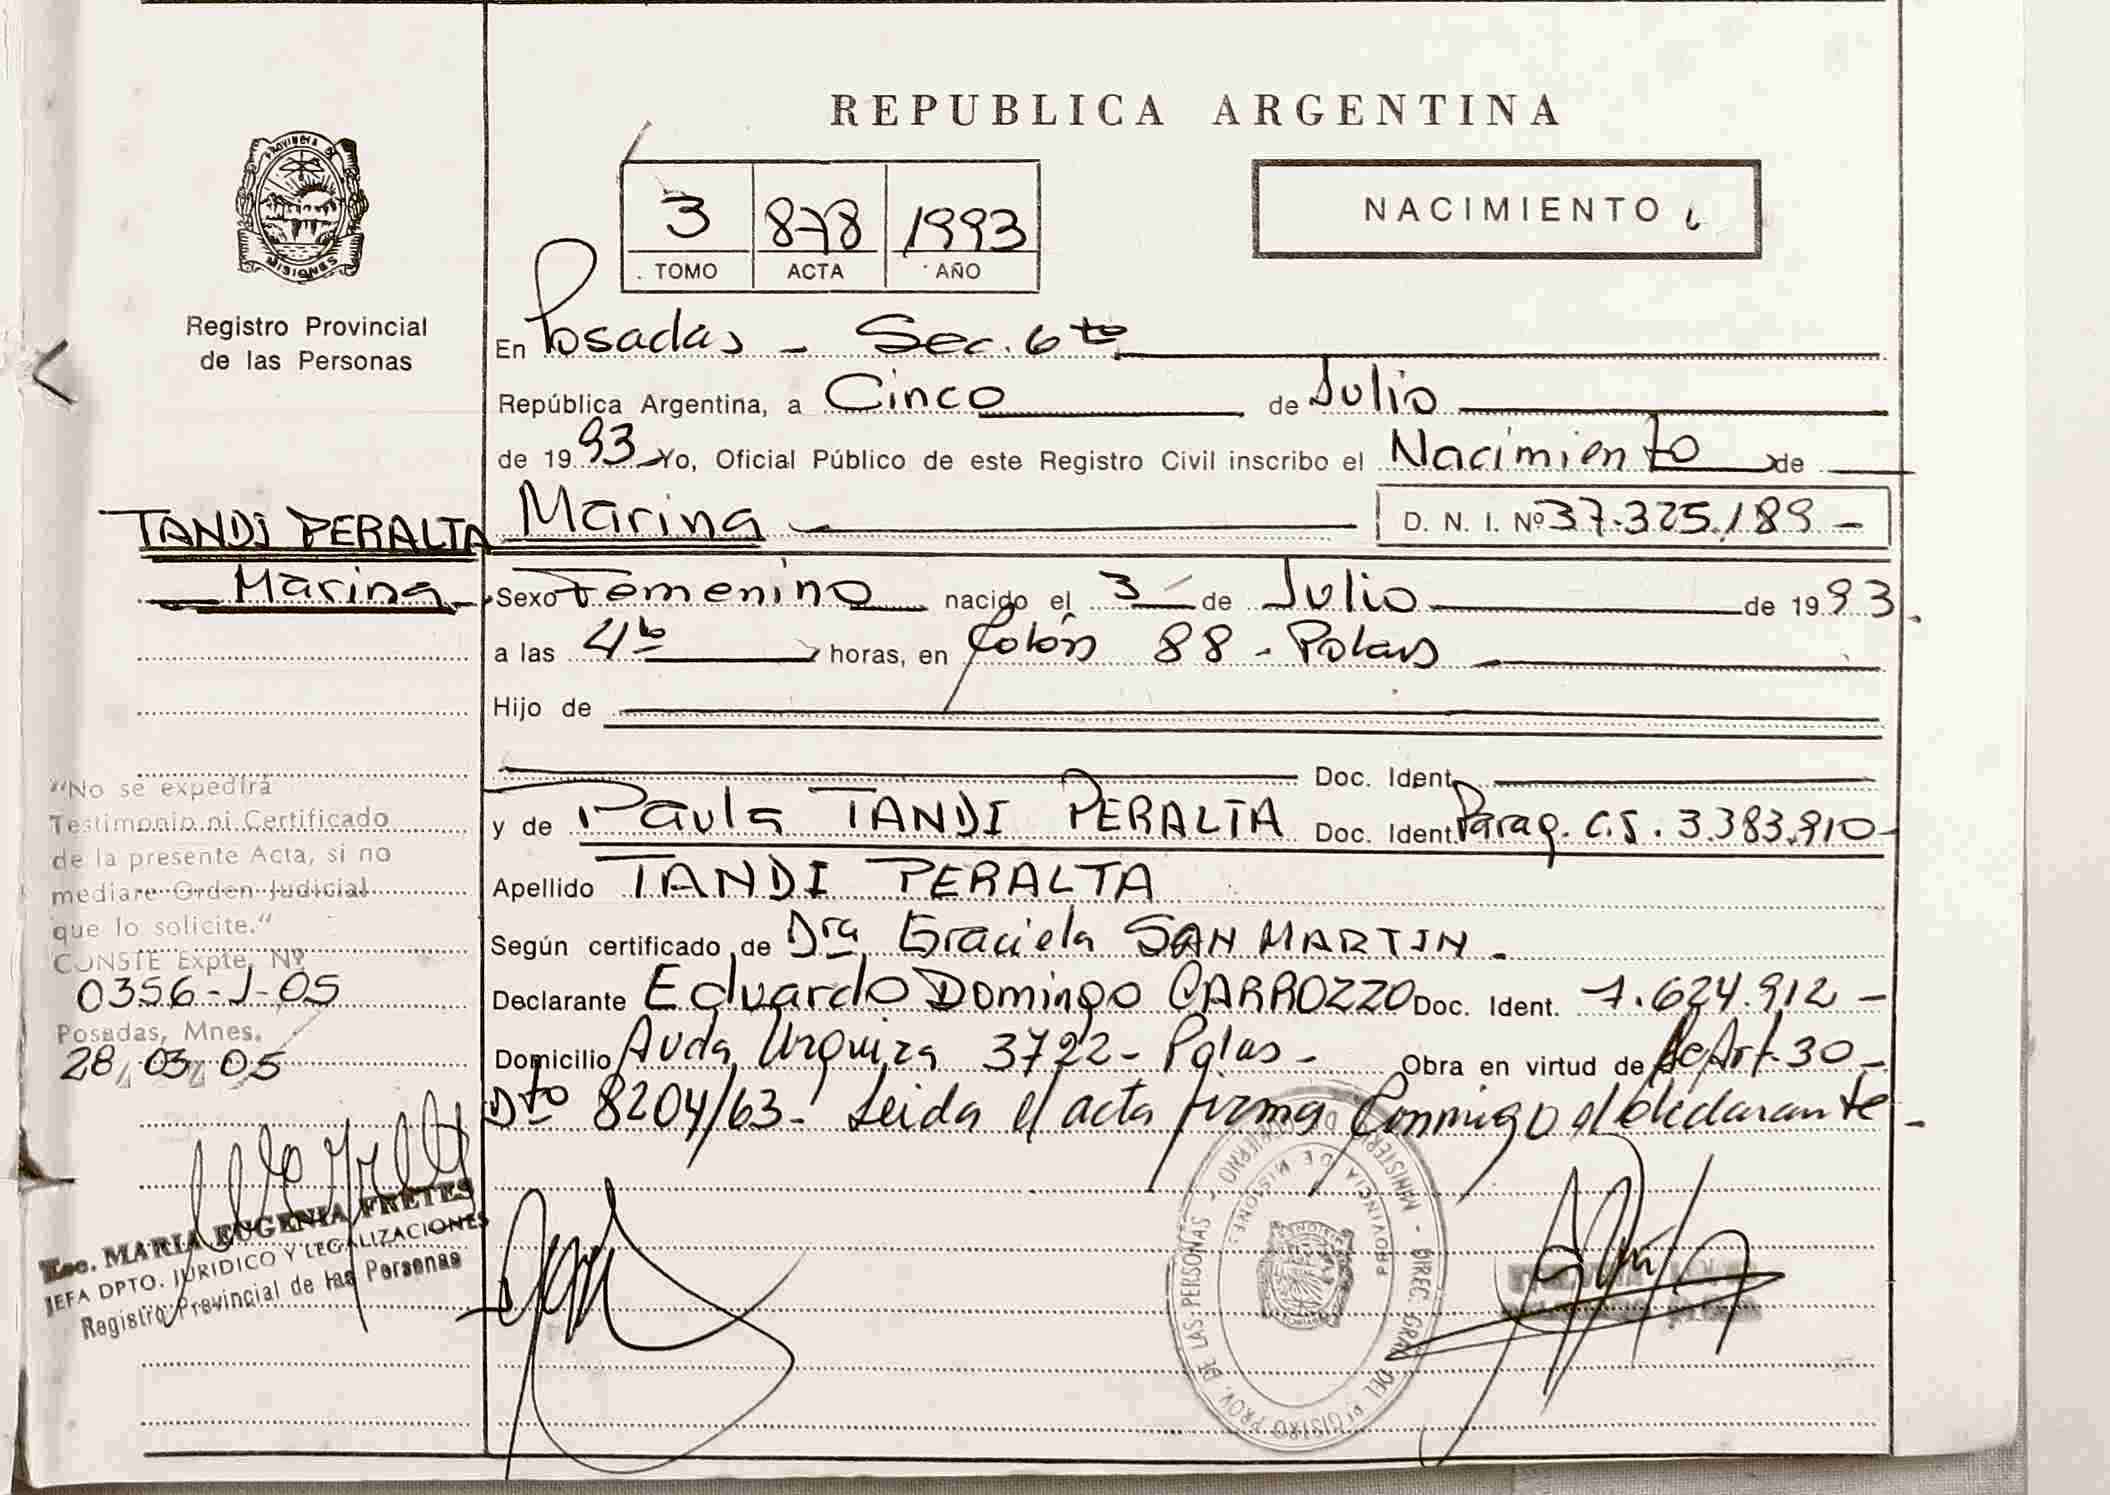 REPUBLICA ARGENTINA
PROVINCIA DE MISIONES
Registro Provincial
de las Personas
3 878 1993
TOMO ACTA AÑO
NACIMIENTO
En Posadas - Sec. 6ta
República Argentina, a Cinco de Julio
de 1993 Yo, Oficial Público de este Registro Civil inscribo el Nacimiento de
TANDI PERALTA
Marina
Marina D. N. I. Nº 37.325.189 -
Sexo Femenino nacido el 3 de Julio de 1993.
a las 4h horas, en Colón 88 - Pdas
Hijo de
Doc. Ident.
y de Paula TANDI PERALTA Doc. Ident. Parag. C.I. 3.383.910-
Apellido TANDI PERALTA
Según certificado de Dra Graciela SAN MARTIN.
Declarante Eduardo Domingo CARROZZO Doc. Ident. 7.624.912 -
Domicilio Avda Urquiza 3722 - Pdas - Obra en virtud de Art. 30 -
Dto 8204/63 - Leida el acta firma conmigo el declarante.
"No se expedirá
Testimonio ni Certificado
de la presente Acta, si no
mediare Orden Judicial
que lo solicite."
CONSTE Expte. Nº
0356-J-05
Posadas, Mnes.
28, 03, 05
Esc. MARIA EUGENIA FRETES
JEFA DPTO. JURIDICO Y LEGALIZACIONES
Registro Provincial de las Personas
MINISTERIO DE GOBIERNO - DIREC. GRAL. DEL REGISTRO PROV. DE LAS PERSONAS -
PROVINCIA DE MISIONES